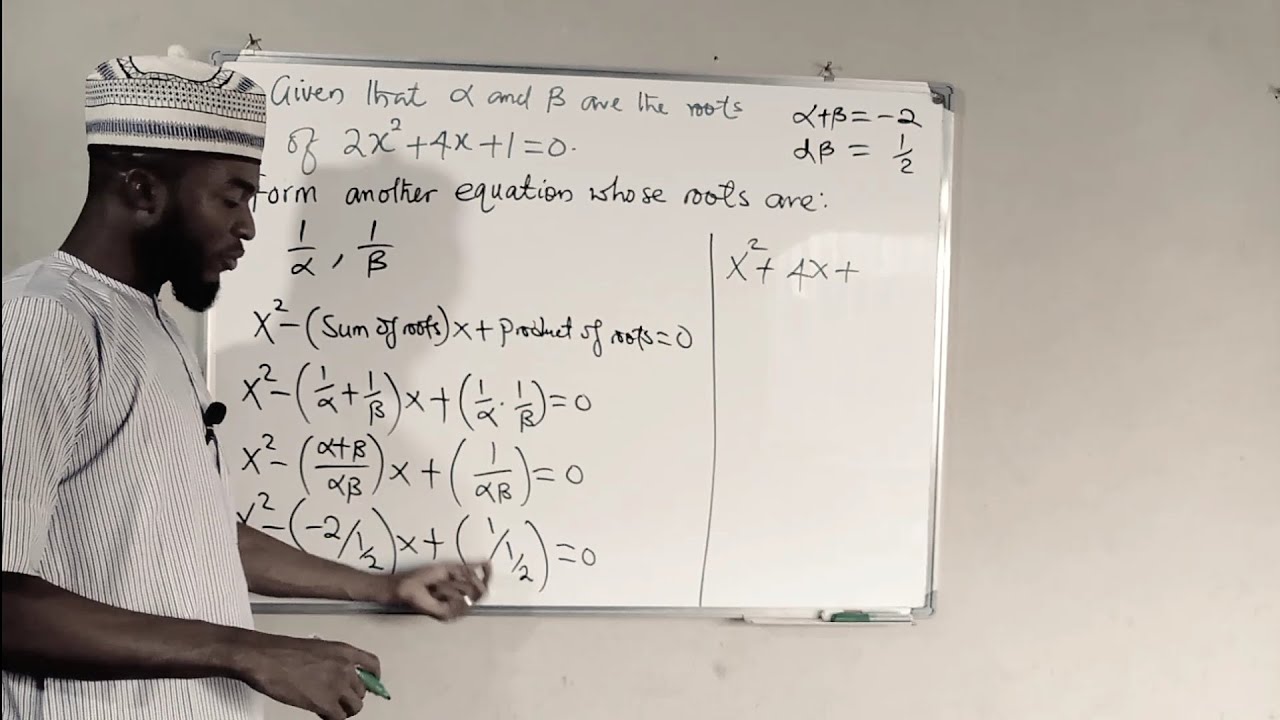 Given that α and β are the roots
of 2x²+4x+1=0.
Form another equation whose roots are:
1/α , 1/β
x²-(Sum of roots)x+Product of roots=0
x²-(1/α+1/β)x+(1/α·1/β)=0
x²-(α+β/αβ)x+(1/αβ)=0
x²-(-2/1/2)x+(1/1/2)=0
α+β=-2
αβ=1/2
x²+4x+